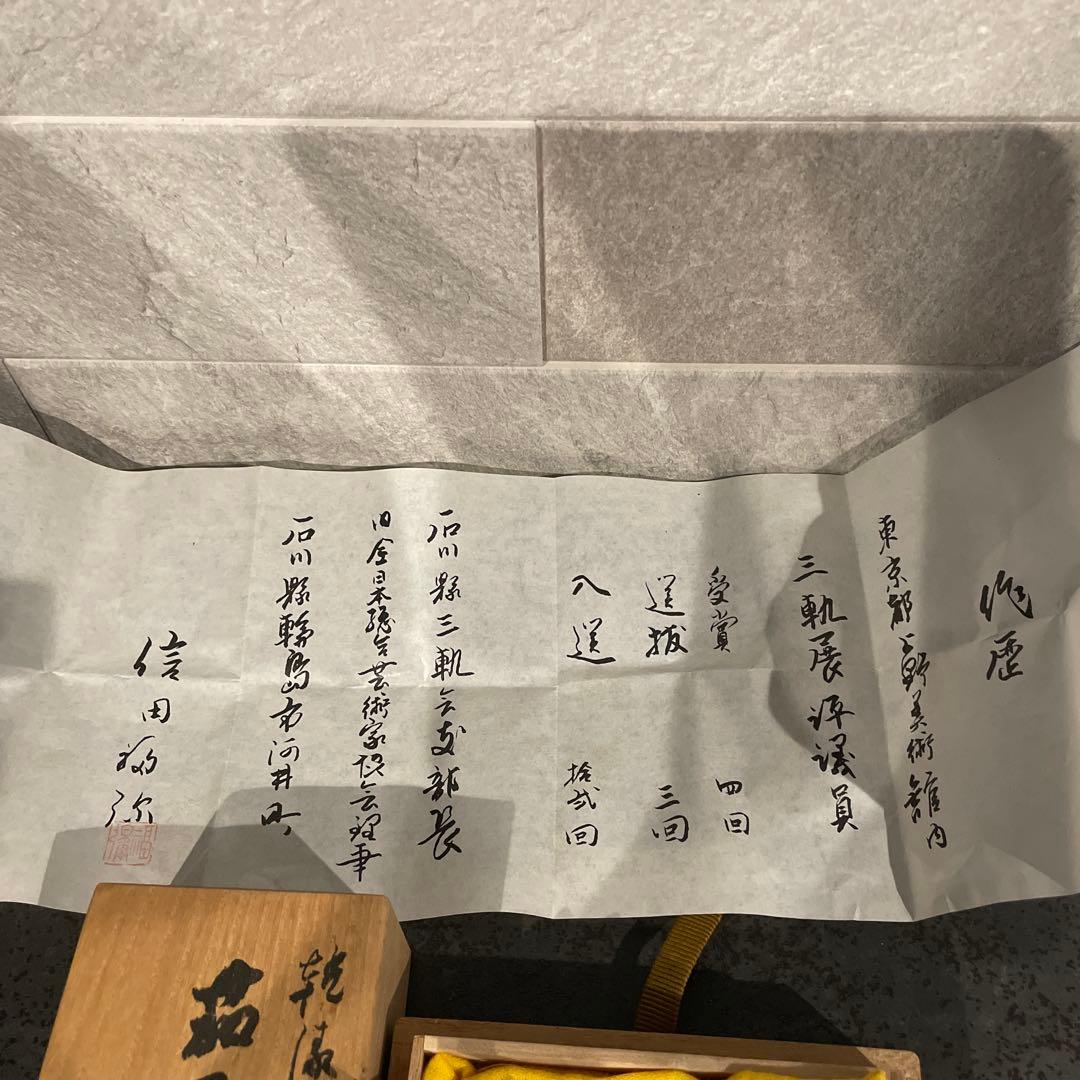 作歴
東京都上野美術館内
三軌展評議員
受賞 四回
選抜 三回
入選 拾弐回
石川縣三軌会支部長
旧全日本総合芸術家協会理事
石川縣輪島市河井町
信田弥
乾漆
茹